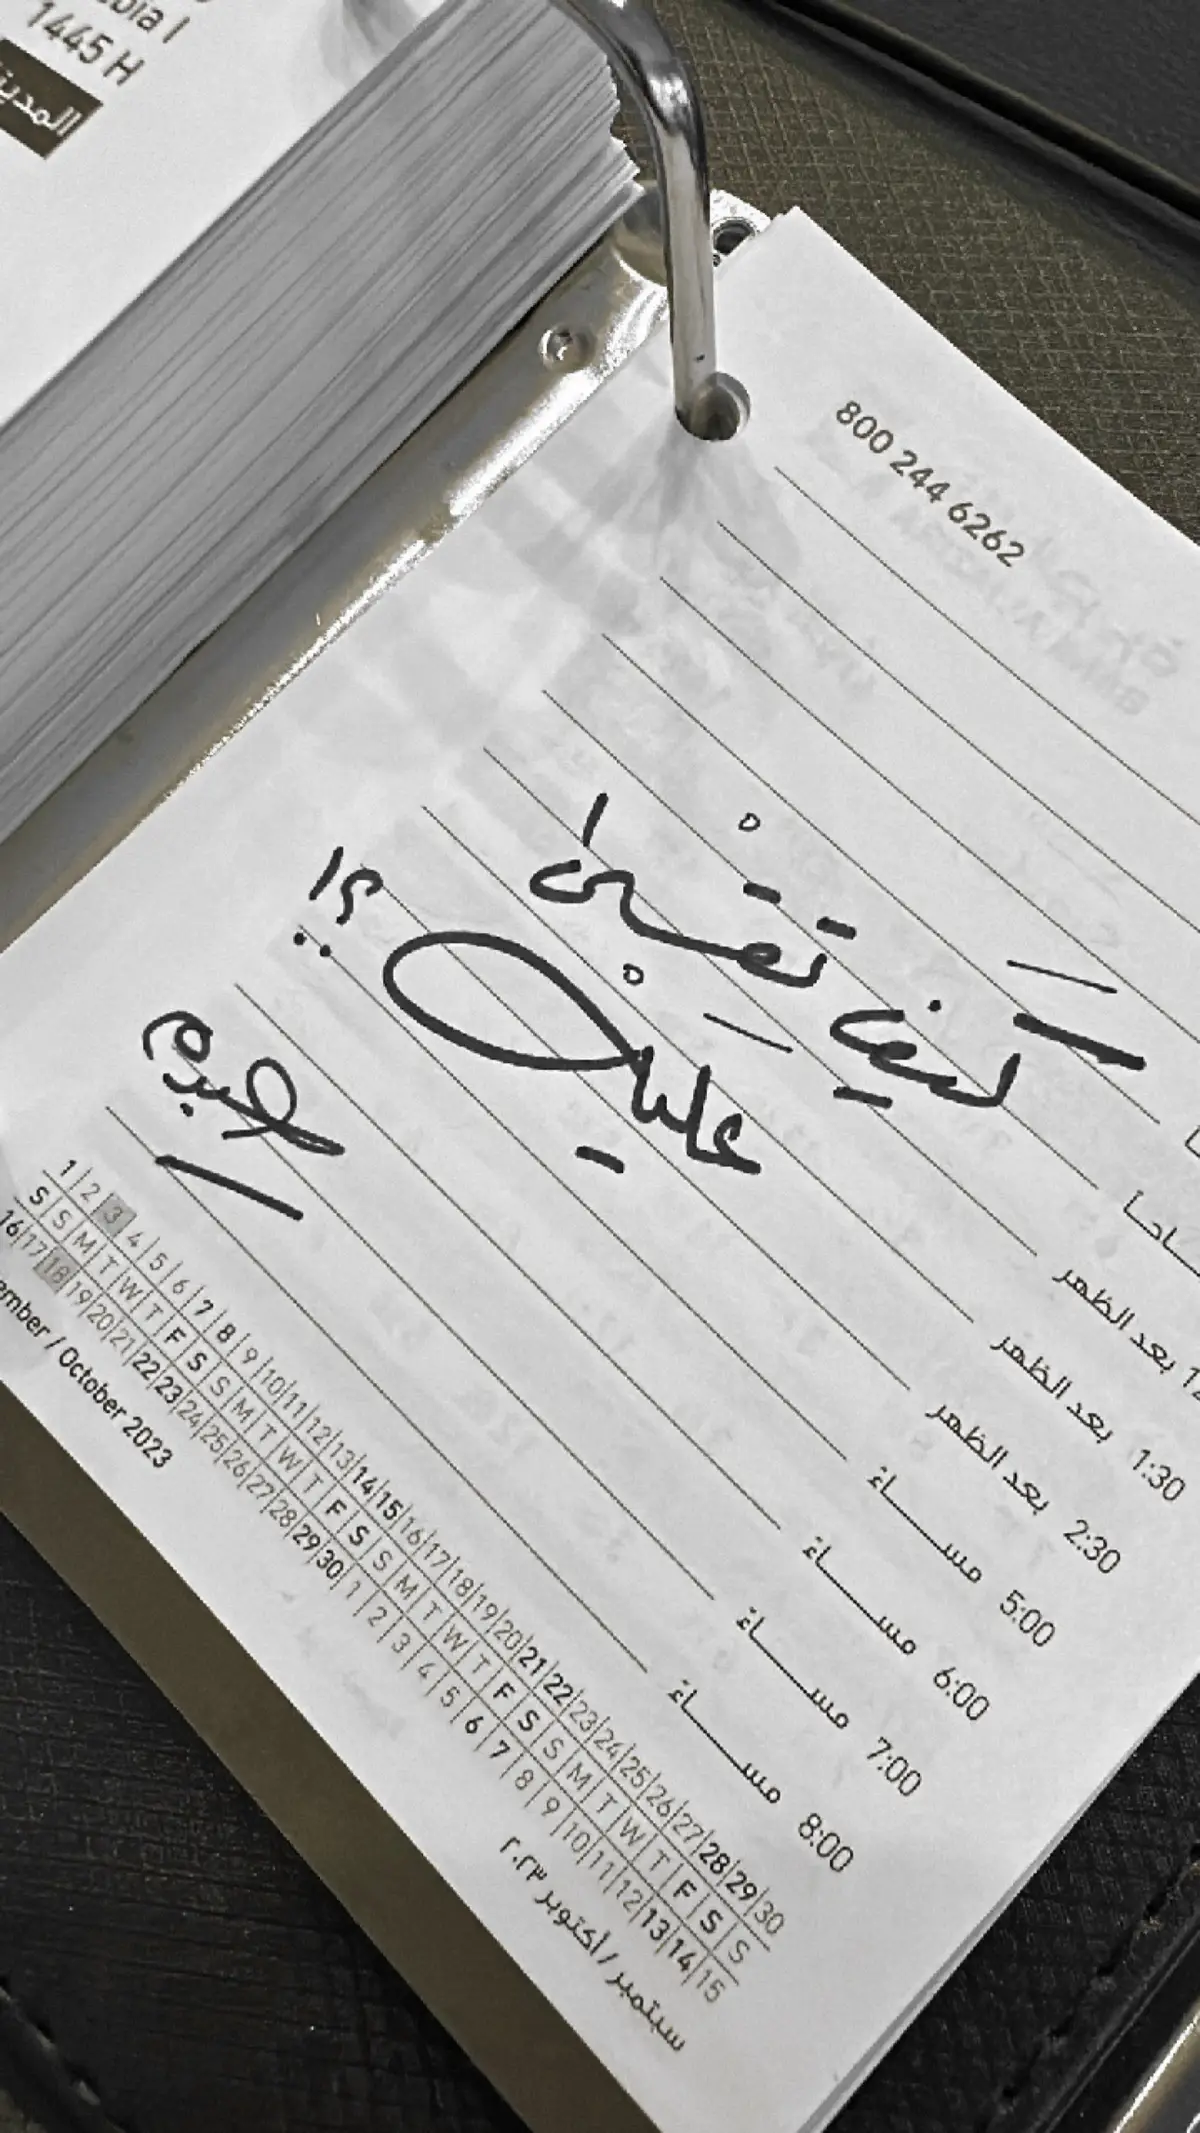 1445 H
800 244 6262
كَيف تقْسىٰ
علَيْك ؟!
بعد الظهر
1:30 بعد الظهر
2:30 بعد الظهر
5:00 مساءً
6:00 مساءً
7:00 مساءً
8:00 مساءً
1 2 3 4 5 6 7 8 9 10 11 12 13 14 15 16 17 18 19 20 21 22 23 24 25 26 27 28 29 30
S S M T W T F S S M T W T F S S M T W T F S S M T W T F S S
16 17 18 19 20 21 22 23 24 25 26 27 28 29 30 1 2 3 4 5 6 7 8 9 10 11 12 13 14 15
/ October 2023
سبتمبر / أكتوبر ٢٠٢٣